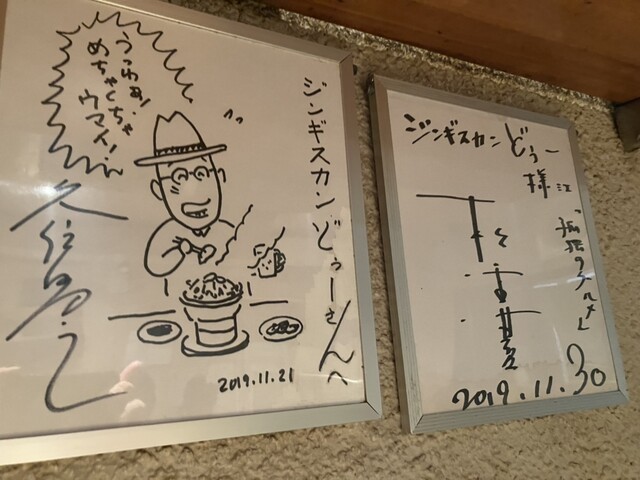 ジンギスカンどぅーさんへ
うわぁ!
めちゃくちゃ
ウマイ!
久住昌之
2019.11.21
ジンギスカン どぅー
様江
「孤独のグルメ」
2019.11.30